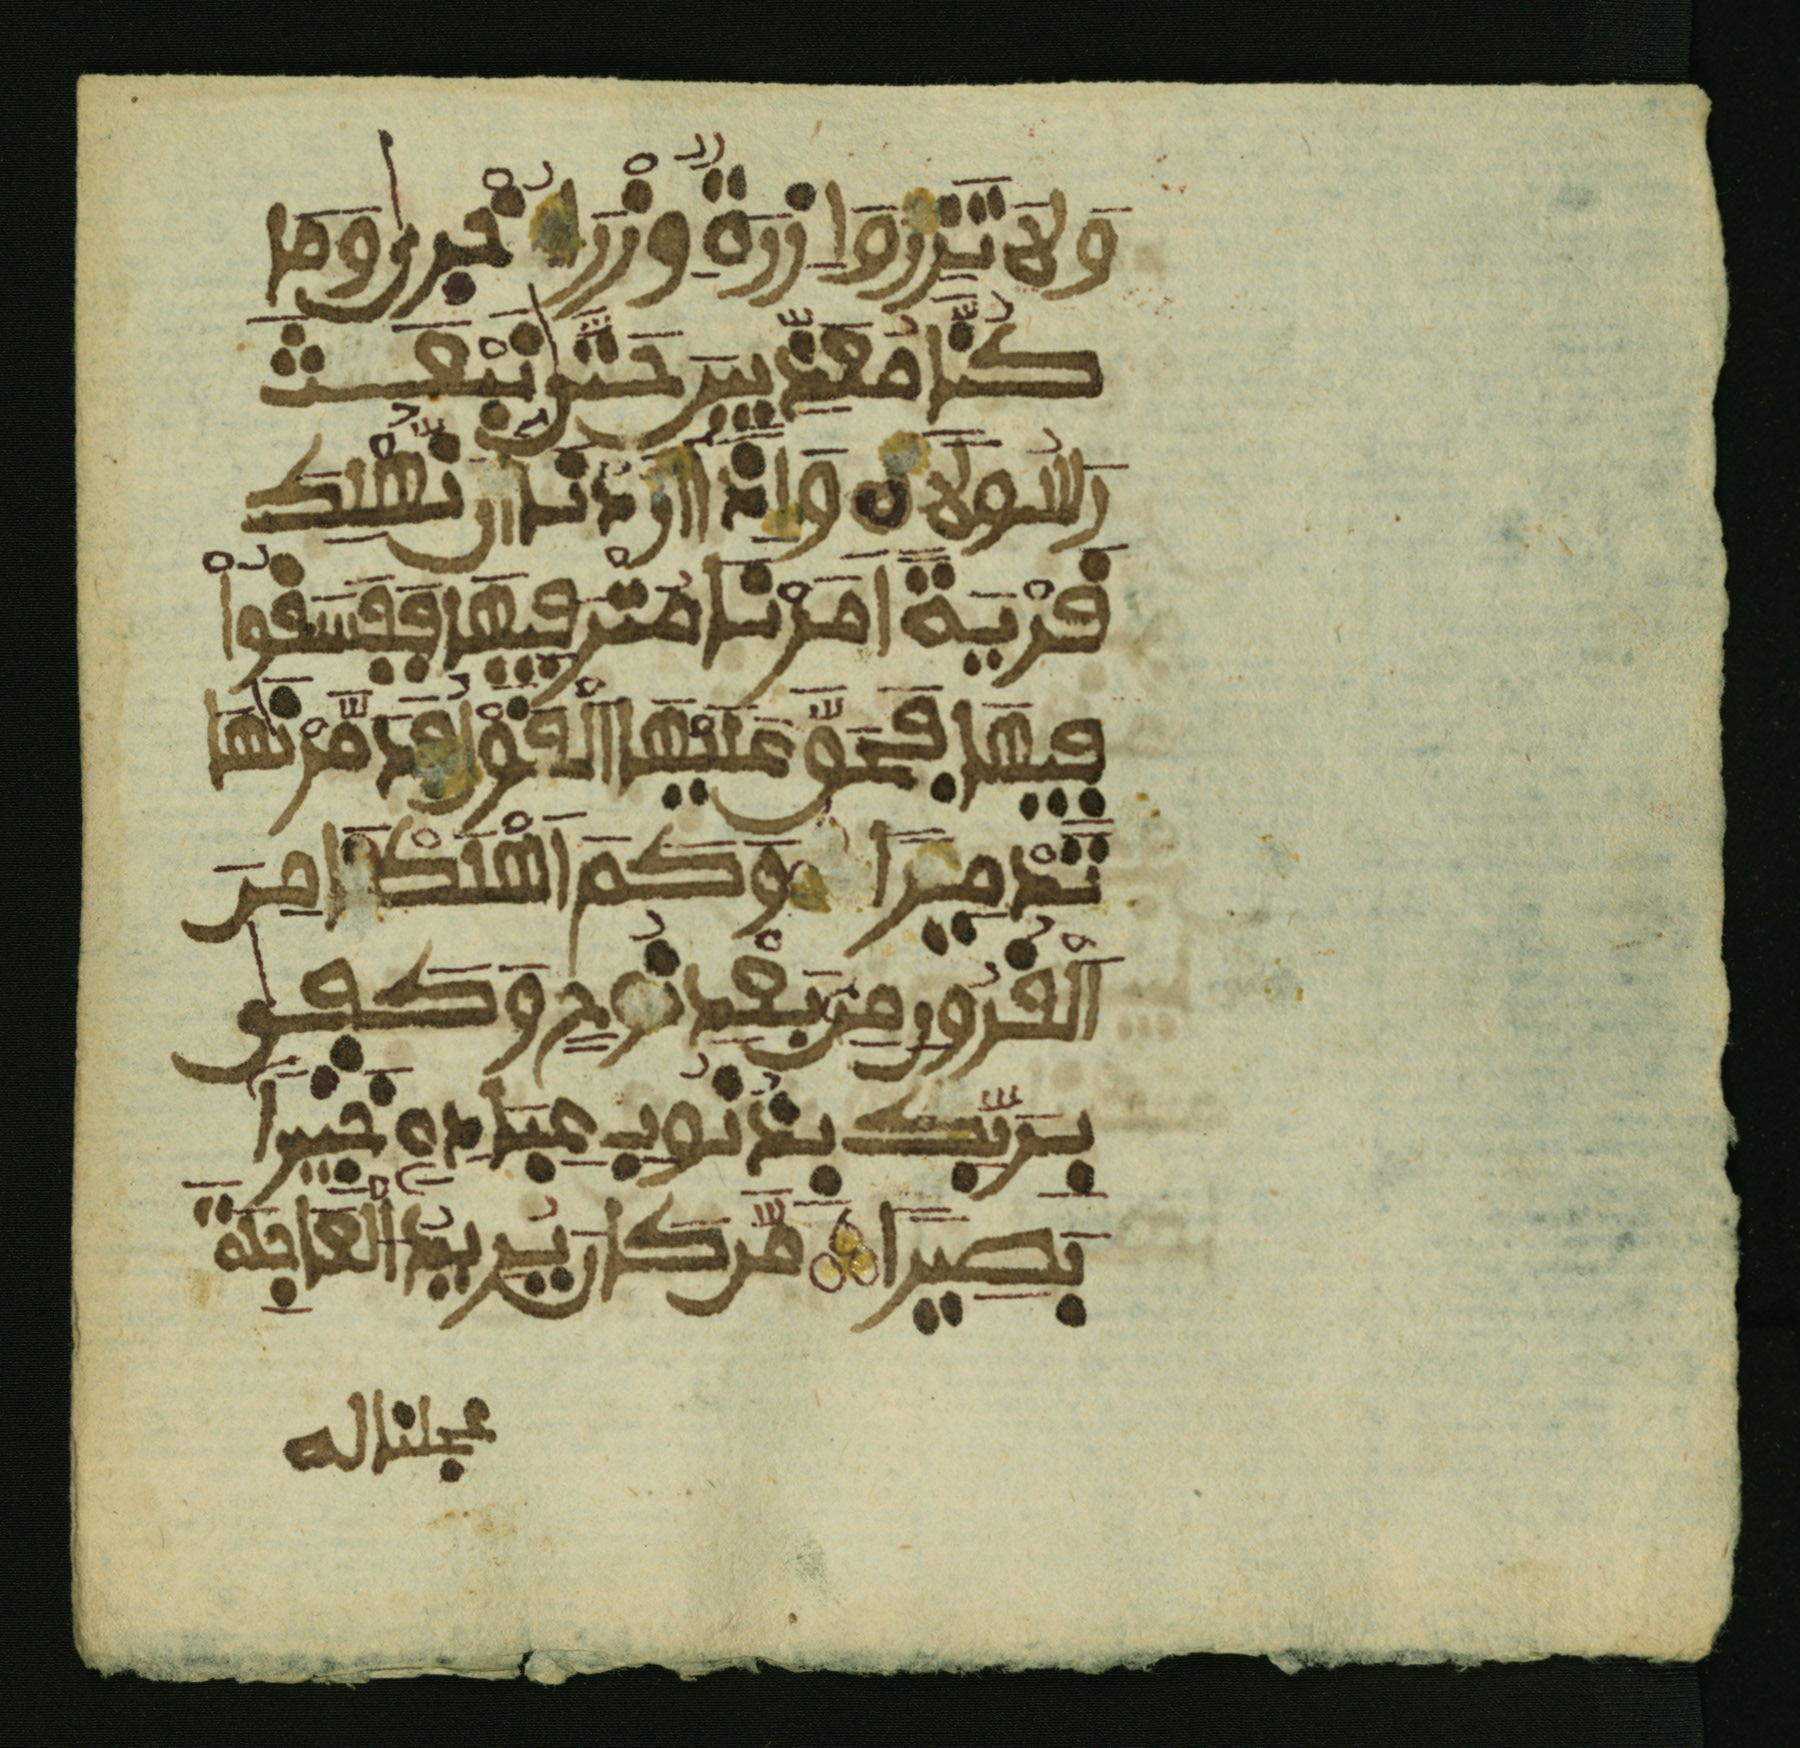 وَلَا تَزِرُ وَازِرَةٌ وِزْرَ أُخْرٜىٰ وَمَا
كُنَّا مُعَذِّبِينَ حَتَّىٰ نَبْعَثَ
رَسُولًا وَإِذَا أَرَدْنَا أَن نُّهْلِكَ
قَرْيَةً اَمَرْنَا مُتْرَفِيهَا فَفَسَقُواْ
فِيهَا فَحَقَّ عَلَيْهَا اَلْقَوْلُ فَدَمَّرْنَٰهَا
تَدْمِيرًا وَكَمَ اَهْلَكْنَا مِنَ
اَلْقُرُونِ مِنۢ بَعْدِ نُوحٍ وَكَفَىٰ
بِرَبِّكَ بِذُنُوبِ عِبَادِهِ خَبِيرًا
بَصِيرًا مَّن كَانَ يُرِيدُ اَلْعَاجِلَةَ
عجلنا له